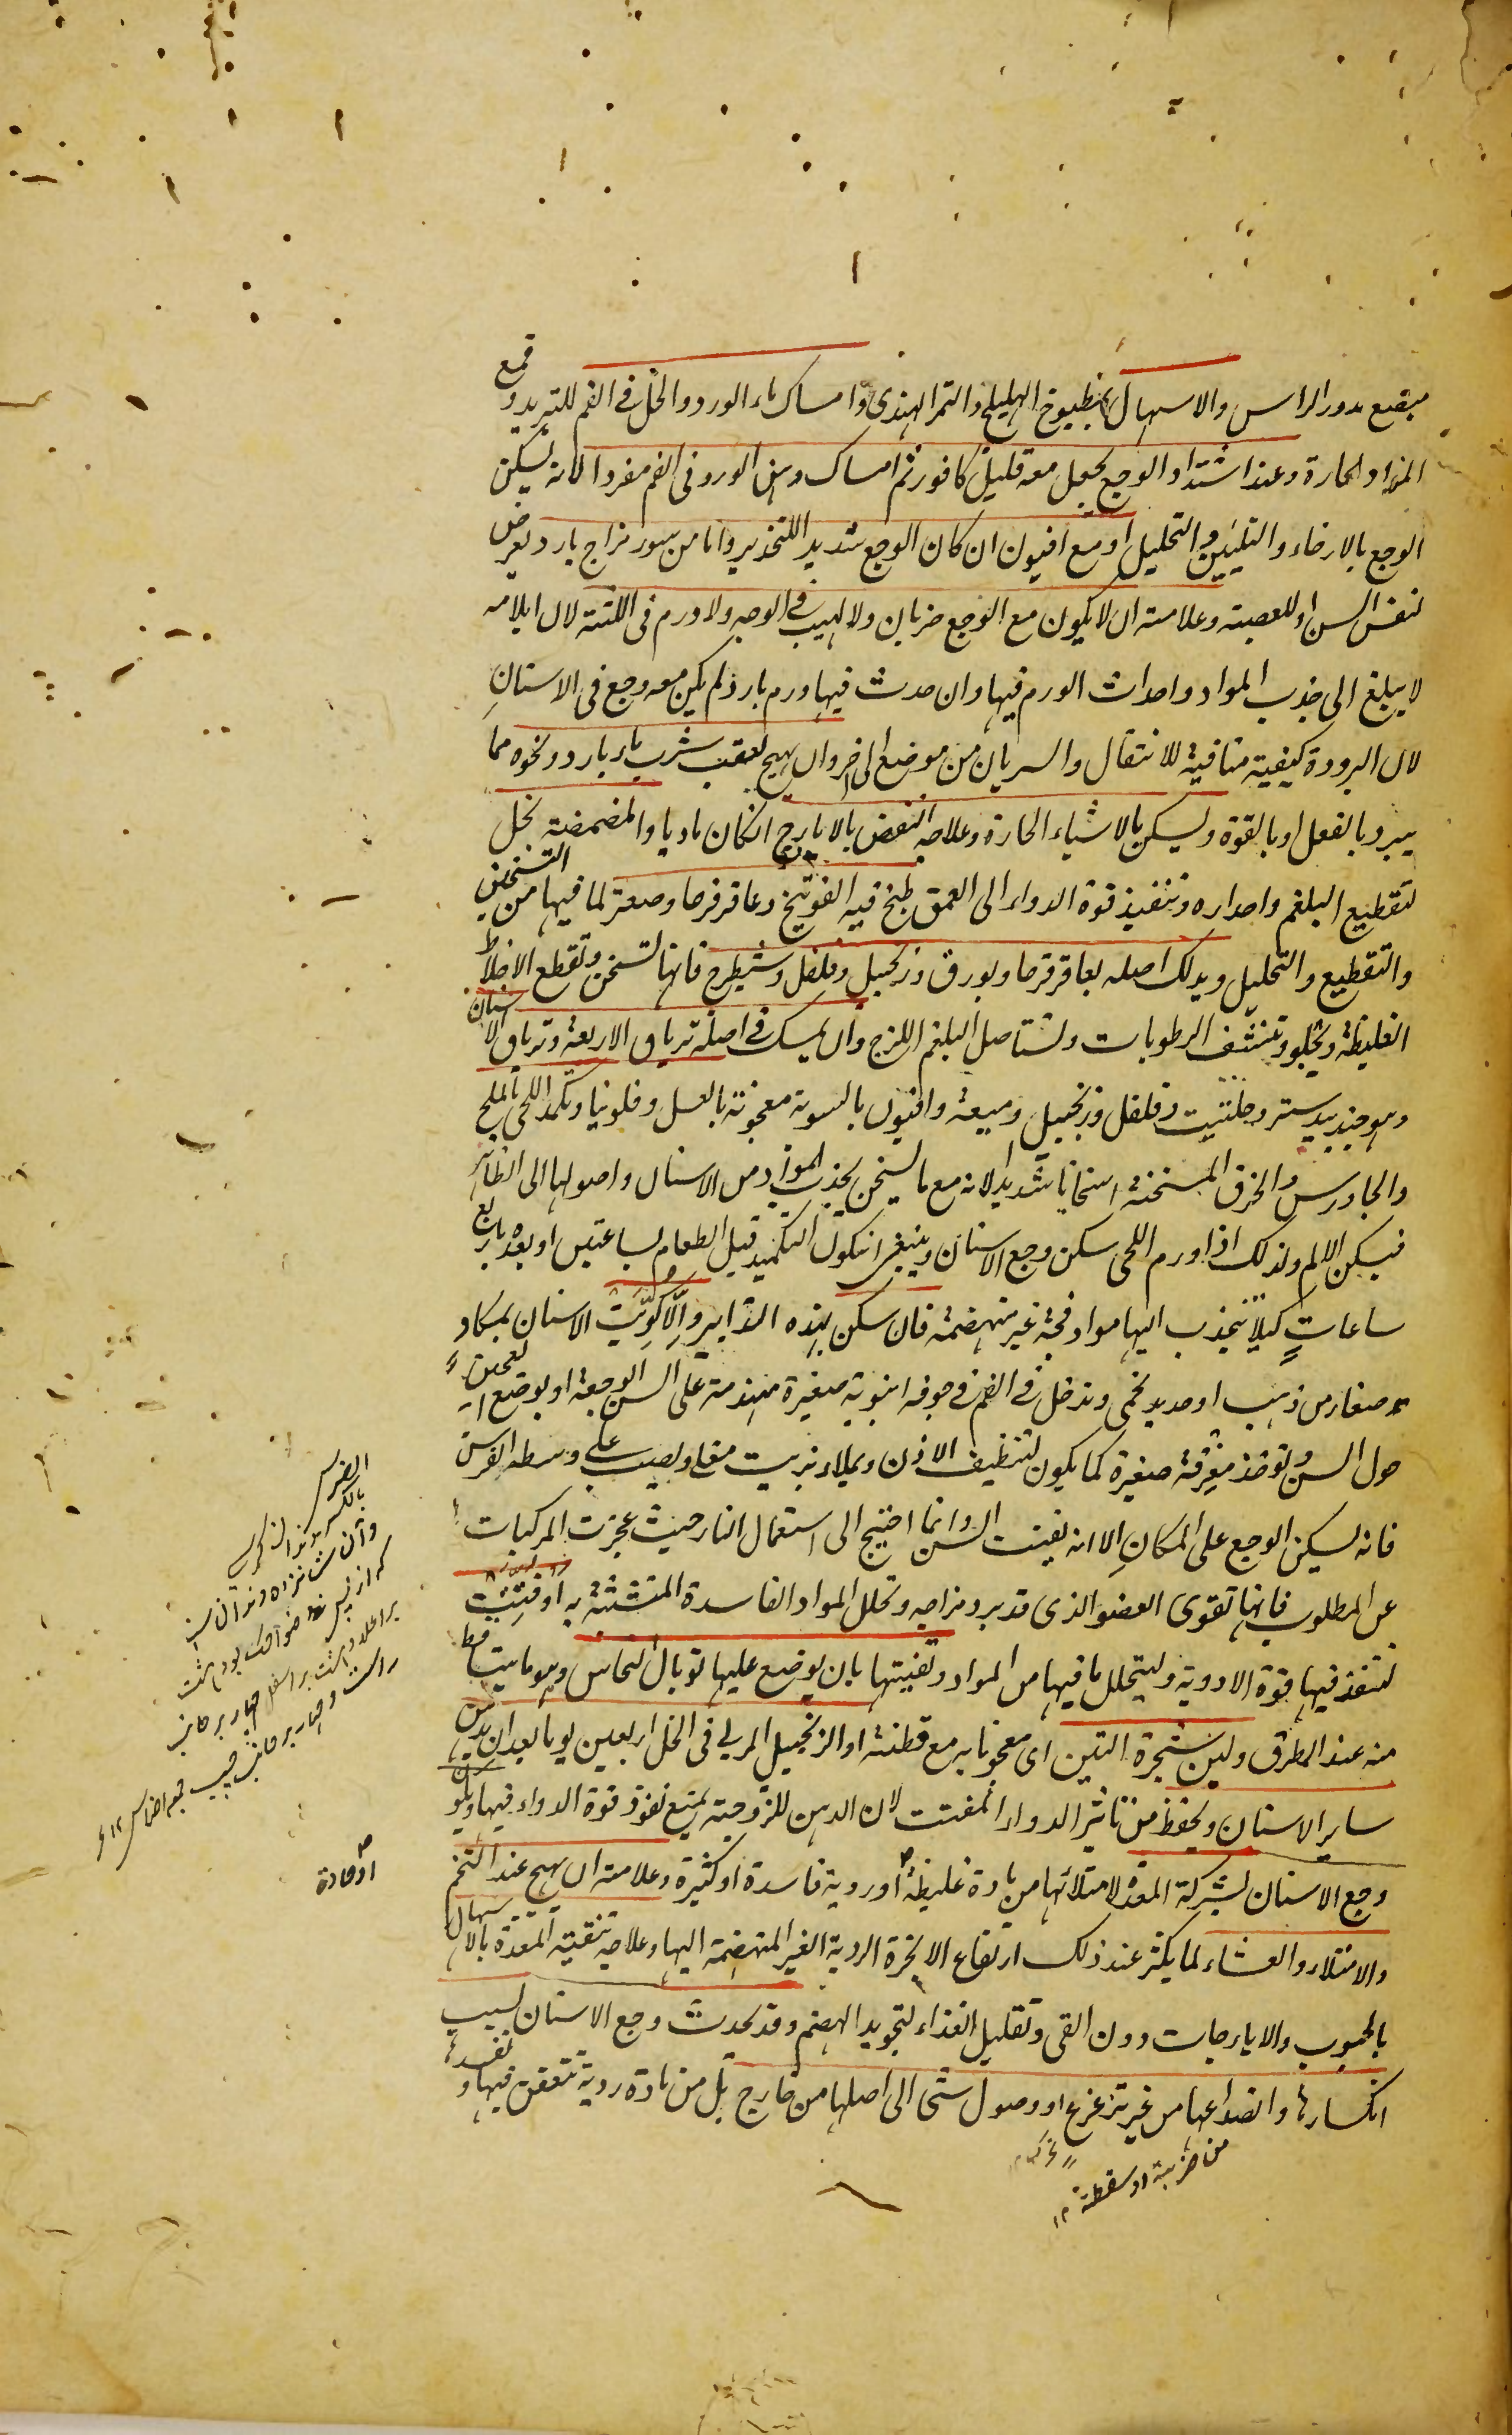 مبضع يدور الراس والاسهال بمطبوخ الهليلج والتمر الهندي وامساك ماء الورد والخل في الفم للتبريد وقمع
المواد الحارة وعند اشتداد الوجع يجعل معه قليل كافور ثم امساك دهن الورد في الفم مفردا لانه يسكن
الوجع بالارخاء والتليين والتحليل او مع افيون ان كان الوجع شديدا للتخدير واما من سوء مزاج بارد يعرض
لنفس السن او للعصبة وعلامته ان لا يكون مع الوجع ضربان ولا لهيب في الوجه ولا ورم في اللثة لان ايلامه
لا يبلغ الى جذب المواد واحداث الورم فيها وان حدث فيها ورم بارد لم يكن معه وجع في الاسنان
لان البرودة كيفية منافية للانتقال والسريان من موضع الى اخر وان يهيج بعقب شرب ماء بارد ونحوه مما
يبرد بالفعل او بالقوة ويسكن بالاشياء الحارة وعلاجه النفض بالايارج انكان ماديا والمضمضة بخل
لتقطيع البلغم واحداره وتنفيذ قوة الدواء الى العمق طبخ فيه الفوتنج وعاقرقرحا وصعتر لما فيها من التسخين
والتقطيع والتحليل ويدلك اصله بعاقرقرحا وبورق وزنجبيل وفلفل وشيطرج فانها تسخن وتقطع الاخلاط
الغليظة وتجلو وتنشف الرطوبات وتستاصل البلغم اللزج وان يمسك في اصله ترياق الاربعة وترياق الاسنان
وهو جندبيدستر وحلتيت وفلفل وزنجبيل وميعة وافيون بالسوية معجونة بالعسل وفلونيا ويكمد اللحى بالملح
والجاورس والخرق المسخنة اسخانا شديدا لانه مع ما يسخن يجذب المواد من الاسنان واصولها الى الظاهر
فيسكن الالم ولذلك اذا ورم اللحى سكن وجع الاسنان وينبغي انيكون التكميد قبل الطعام بساعتين او بعده باربع
ساعات كيلا ينجذب اليها مواد فجة غير منهضمة فان سكن بهذه التدابير والا كويت الاسنان بمكاو
صغار من ذهب او حديد تحمى وتدخل في الفم في جوف انبوبة صغيرة مهندمة على السن الوجعة او يوضع العجين
حول السن وتوخذ مغرفة صغيرة كما يكون لتنظيف الاذن ويملاء بزيت مغلى ويصب على وسطه الضرس
فانه يسكن الوجع على المكان الا انه يفتت السن وانما احتيج الى استعمال النار حيث عجزت المركبات
عن المطلوب فانها تقوى العضو الذي قد برد مزاجه وتحلل المواد الفاسدة المتشبثة به او فتتت
لتنفذ فيها قوة الادوية وليتحلل ما فيها من المواد وتفتيتها بان يوضع عليها توبال النحاس وهو ما يتساقط
منه عند المطرق ولبن شجرة التين اى معجونا به مع قطنة او الزنجبيل المربى في الخل اربعين يوما بعد ان يدهن
ساير الاسنان ويحفظ من تاثير الدواء المفتت لان الدهن للزوجته يمنع نفوذ قوة الدواء فيها ويكون
وجع الاسنان بشركة المعدة لامتلائها من مادة غليظة او روية فاسدة او كثيرة وعلامته ان يهيج عند التخم
والامتلاء والعشاء لما يكثر عند ذلك ارتفاع الابخرة الردية الغير المنهضمة اليها وعلاجه تنقية المعدة بالاسهال
بالحبوب والايارجات دون القى وتقليل الغذاء لتجويد الهضم وقد يحدث وجع الاسنان بسبب
انكسارها وانصداعها من غير تزعزع او وصول شئ الى اصلها من خارج بل من مادة ردية تتعفن فيها وتفسدها
من ضربة او سقطة ۱۲
الضرس
بالكسر
او حادة